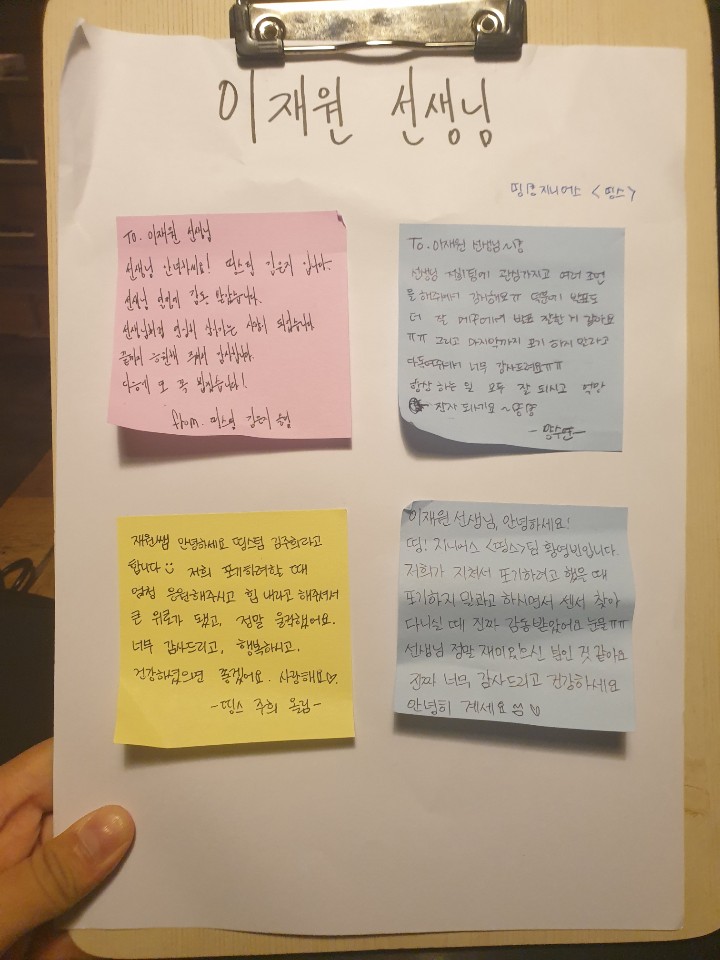 이재원 선생님
띵! 지니어스 <띵스>
To. 이재원 선생님
선생님 안녕하세요! 띵스팀 김은지 입니다.
선생님 열정에 감동 받았습니다.
선생님처럼 열심히 살아가는 사람이 되겠습니다
끝까지 응원해 주셔서 감사합니다.
다음에 또 꼭 뵙겠습니다!
from. 띵스팀 김은지 올림
To. 이재원 선생님~
선생님 저희팀에 관심가지고 여러 조언
을 해주셔서 감사해요ㅠ 덕분에 발표도
더 잘 발표 잘한 거 같아요
ㅠㅠ 그리고 마지막까지 포기 하지 말라고
다독여주셔서 너무 감사드려요ㅠㅠ
항상 하는 일 모두 잘 되시고 억만
장자 되세요~
-양수연-
재원쌤 안녕하세요 띵스팀 김주희라고
합니다 저희 포기하려할 때
엄청 응원해주시고 힘 내라고 해주셔서
큰 위로가 됐고, 정말 울컥했어요.
너무 감사드리고, 행복하시고.
건강하셨으면 좋겠어요. 사랑해요♡.
-띵스 주희 올림-
이재원 선생님, 안녕하세요!
띵! 지니어스 <띵스>팀 황영빈입니다.
저희가 지쳐서 포기하려고 했을 때
포기하지 말라고 하시면서 센서 찾아
다니실 때 진짜 감동받았어요 눈물ㅠㅠ
선생님 정말 재미있으신 분인 것 같아요
진짜 너무 감사드리고 건강하세요
안녕히 계세요 ♡